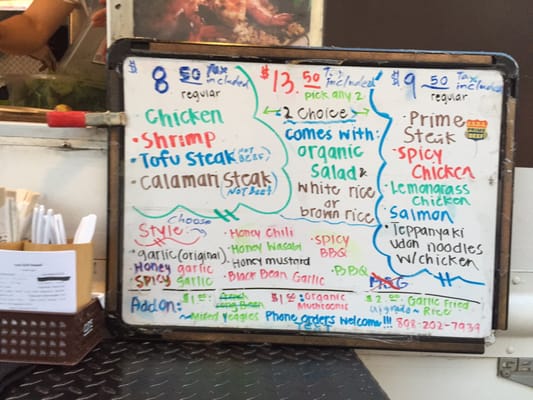 $8 50 Tax included
regular
Chicken
• Shrimp
• Tofu Steak (NOT BEEF)
• Calamari Steak (NOT BEEF)
$13.50 Tax included
pick any 2
2 Choice
comes with:
organic
Salad &
white rice
or
brown rice
$9 50 Tax included
regular
• Prime
Steak
• Spicy
Chicken
• Lemongrass
Chicken
• Salmon
• Teppanyaki
udon noodles
w/chicken
Choose
Style:
• garlic (original)
• Honey garlic
• Spicy garlic
• Honey Chili
• Honey Wasabi
• Honey mustard
• Black Bean Garlic
• Spicy
BBQ
• BBQ
MSG
Add on:
$1.00: French
Long Bean
~ Mixed Veggies
$1.00: Organic
Mushrooms
$2.00 Garlic Fried
upgrade ~ Rice
Phone orders welcome!!! 808-202-7939
TEXT